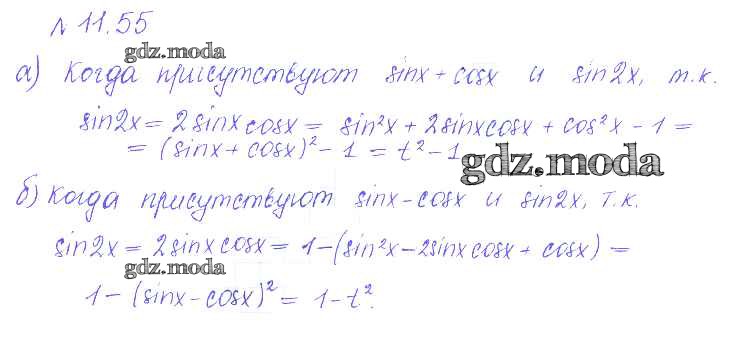 № 11.55
gdz.moda
а) Когда присутствуют sinx + cosx и sin2x, т.к.
sin2x = 2sinxcosx = sin²x + 2sinxcosx + cos²x - 1 =
= (sinx + cosx)² - 1 = t² - 1
gdz.moda
б) Когда присутствуют sinx - cosx и sin2x, т.к.
sin2x = 2sinxcosx = 1 - (sin²x - 2sinxcosx + cosx) =
gdz.moda
1 - (sinx - cosx)² = 1 - t².